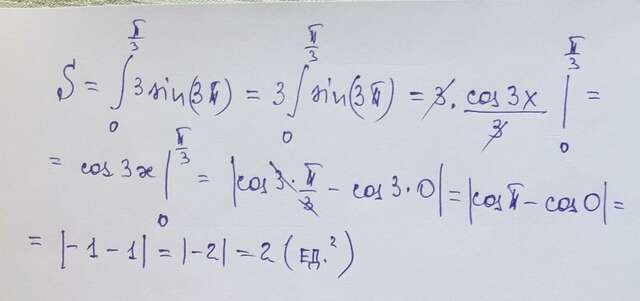 S = ∫₀^(π/3) 3 sin(3π) = 3 ∫₀^(π/3) sin(3π) = 3 · cos 3x / 3 |₀^(π/3) =
= cos 3x |₀^(π/3) = |cos 3 · π/3 − cos 3 · 0| = |cos π − cos 0| =
= |−1 − 1| = |−2| = 2 (ЕД.²)